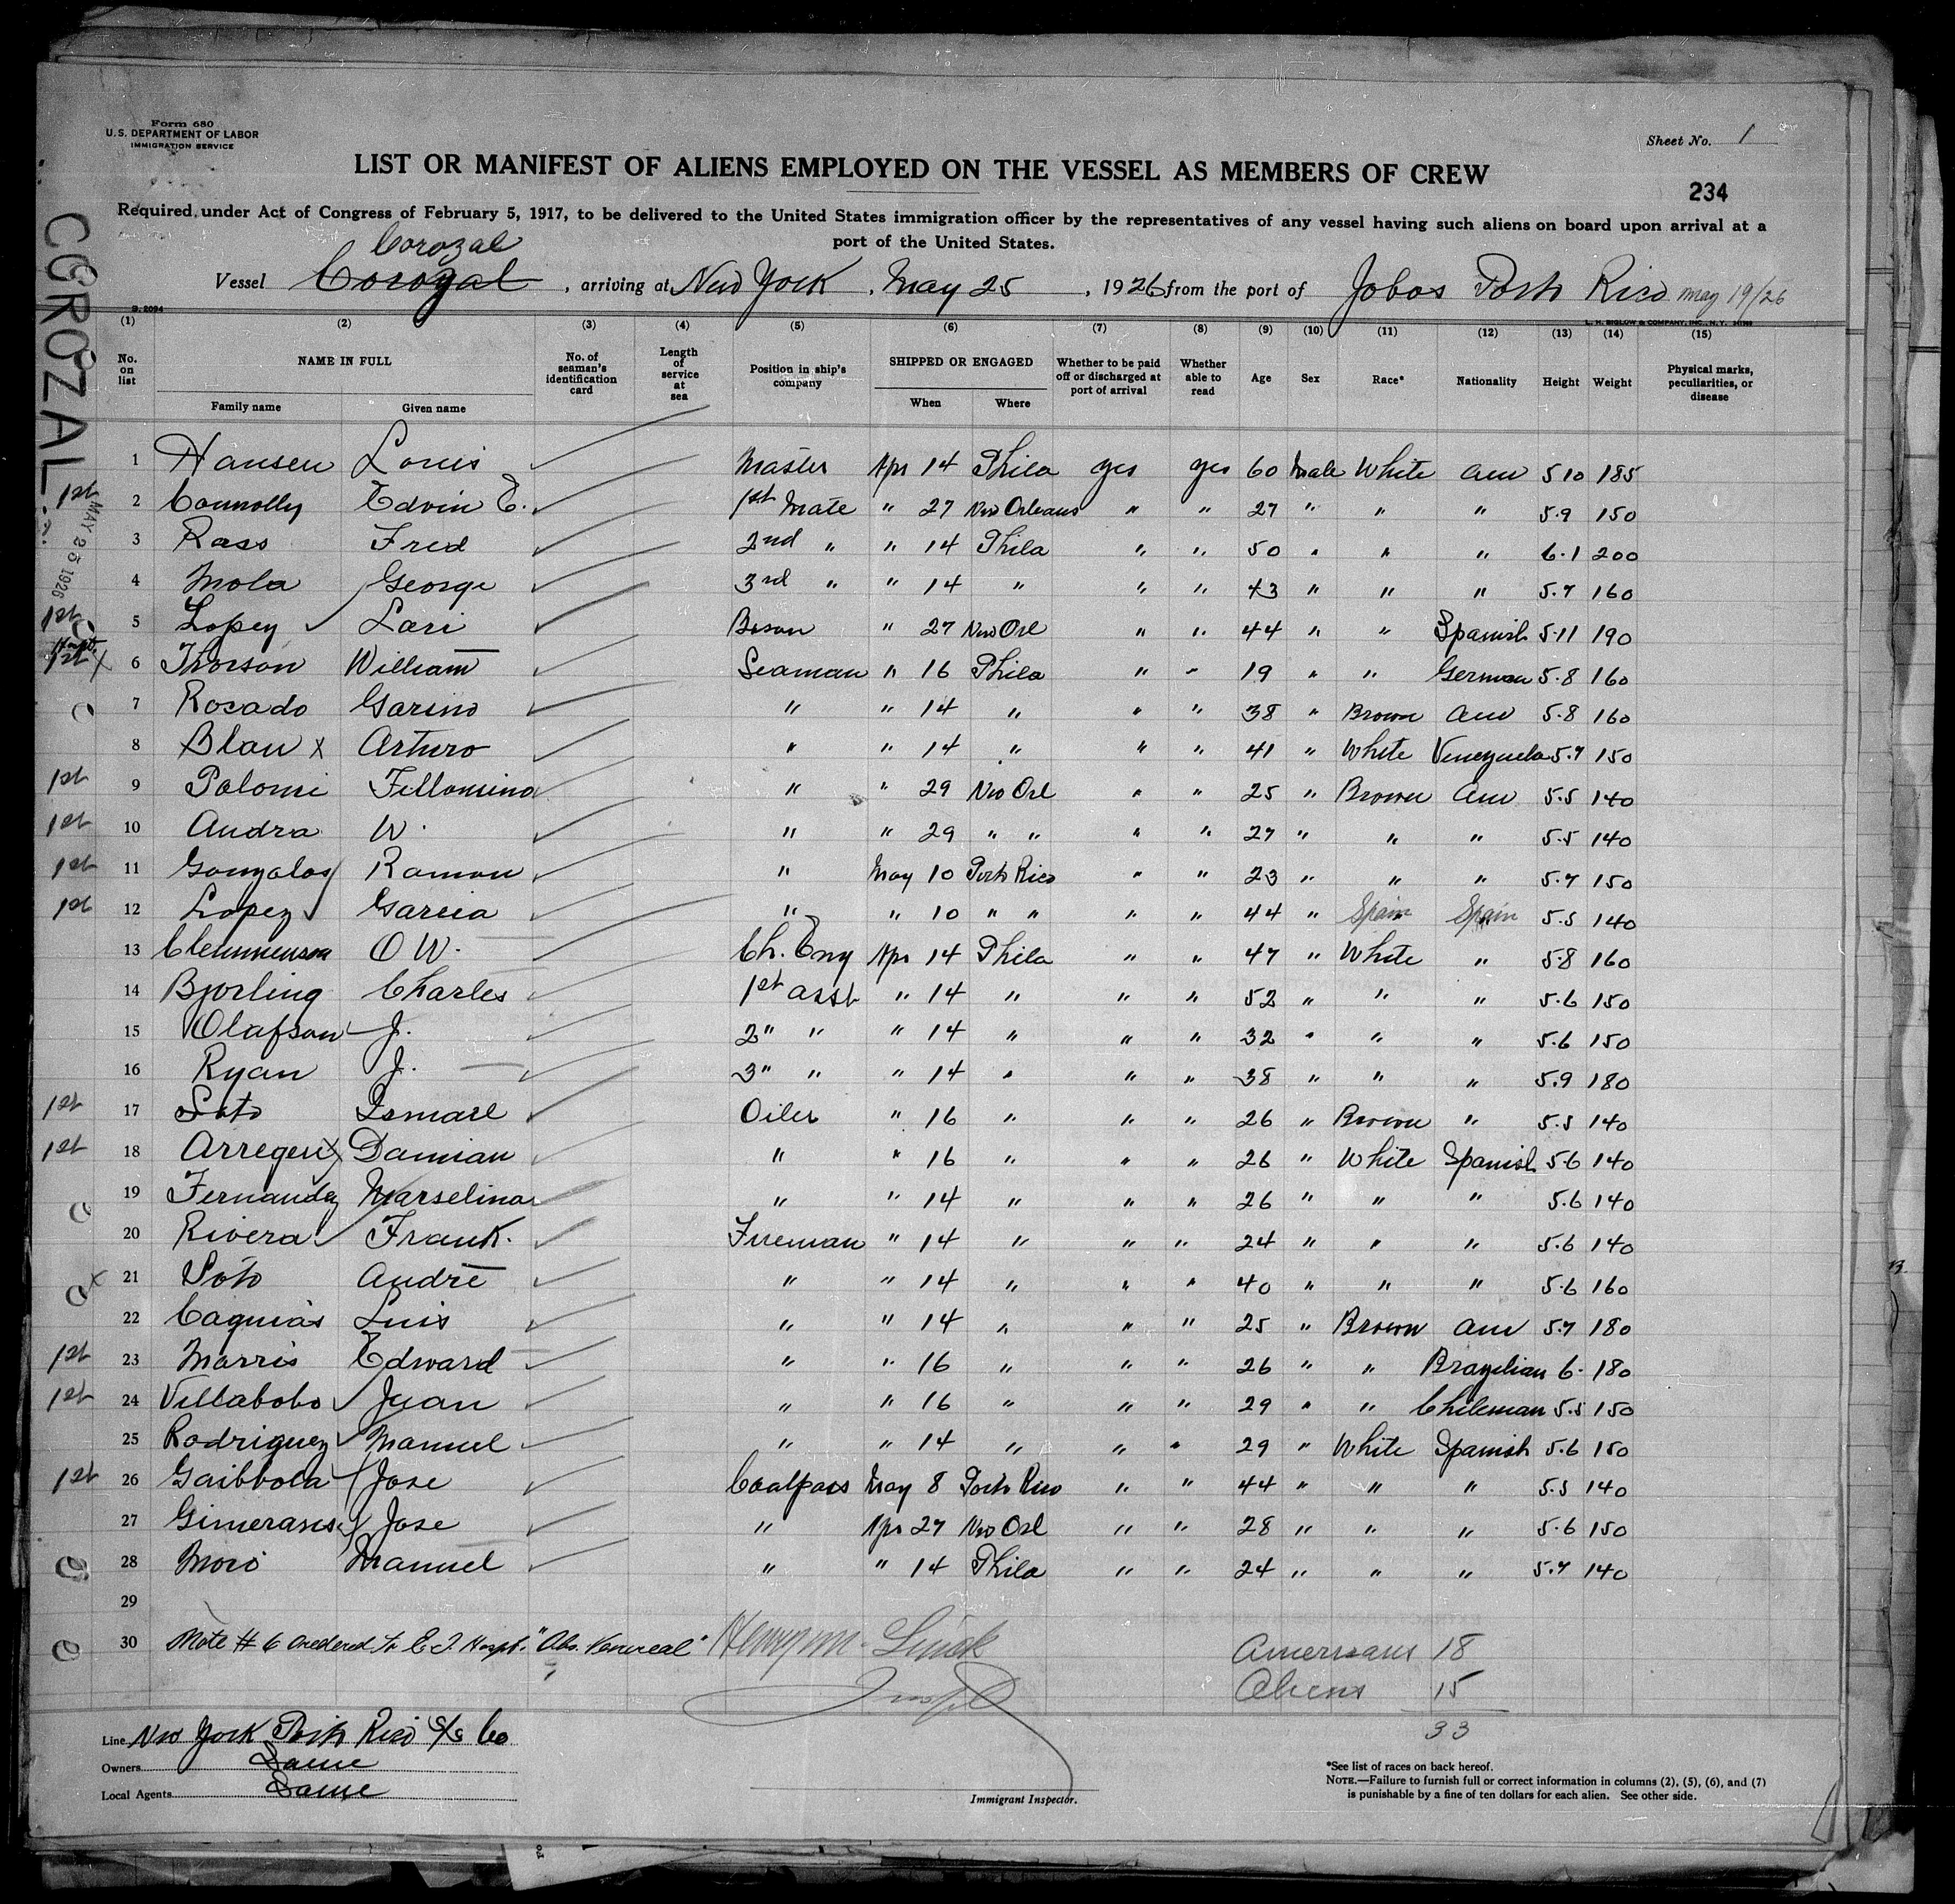 Form 680
U.S. DEPARTMENT OF LABOR
IMMIGRATION SERVICE
Sheet No. 1
LIST OR MANIFEST OF ALIENS EMPLOYED ON THE VESSEL AS MEMBERS OF CREW
234
Required under Act of Congress of February 5, 1917, to be delivered to the United States immigration officer by the representatives of any vessel having such aliens on board upon arrival at a
port of the United States.
Corozal
Vessel Corozal, arriving at New York, May 25, 1926 from the port of Jobos Porto Rico May 19/26
COROZAL
MAY 25 1926
(1) (2) (3) (4) (5) (6) (7) (8) (9) (10) (11) (12) (13) (14) (15)
No. on list NAME IN FULL No. of seaman's identification card Length of service at sea Position in ship's company SHIPPED OR ENGAGED Whether to be paid off or discharged at port of arrival Whether able to read Age Sex Race* Nationality Height Weight Physical marks, peculiarities, or disease
Family name Given name When Where
1 Hansen Louis Master Apr 14 Phila yes yes 60 Male White Am 5 10 185
1st 2 Connolly Edvin E. 1st Mate " 27 New Orleans " " 27 " " " 5.9 150
3 Rass Fred 2nd " " 14 Phila " " 50 " " " 6.1 200
4 Mola George 3rd " " 14 " " " 43 " " " 5.7 160
1st 5 Lopez Lari Bosun " 27 New Orl " " 44 " " Spanish 5.11 190
Hospt. 1st x 6 Thorson William Seaman " 16 Phila " " 19 " " German 5.8 160
7 Rosado Garino " " 14 " " " 38 " Brown Am 5.8 160
8 Blan x Arturo " " 14 " " " 41 " White Venezuela 5.7 150
1st 9 Palomi Fillomino " " 29 New Orl " " 25 " Brown Am 5.5 140
1st 10 Andra W. " " 29 " " " " 27 " " " 5.5 140
1st 11 Gonzalos Ramon " May 10 Porto Rico " " 23 " " " 5.7 150
1st 12 Lopez Garcia " " 10 " " " " 44 " Spain Spain 5.5 140
13 Clemmenson O W. Ch. Eng Apr 14 Phila " " 47 " White " 5.8 160
14 Bjorling Charles 1st asst " 14 " " " 52 " " " 5.6 150
15 Olafson J. 2" " " 14 " " " 32 " " " 5.6 150
16 Ryan J. 3" " " 14 " " " 38 " " " 5.9 180
1st 17 Soto Ismael Oiler " 16 " " " 26 " Brown " 5.5 140
1st 18 Arregeri x Damian " " 16 " " " 26 " White Spanish 5.6 140
19 Fernandez Marselino " " 14 " " " 26 " " " 5.6 140
20 Rivera Frank. Fireman " 14 " " " 24 " " " 5.6 140
x 21 Soto Andre " " 14 " " " 40 " " " 5.6 160
22 Caquias Luis " " 14 " " " 25 " Brown Am 5.7 180
1st 23 Marris Edward " " 16 " " " 26 " " Brazilian 6. 180
1st 24 Villabobo Juan " " 16 " " " 29 " " Chileman 5.5 150
25 Rodriguez Manuel " " 14 " " " 29 " White Spanish 5.6 150
1st 26 Gaibbola Jose Coalpass May 8 Porto Rico " " 44 " " " 5.5 140
27 Gimeranes Jose " Apr 27 New Orl " " 28 " " " 5.6 150
28 Moro Manuel " " 14 Phila " " 24 " " " 5.7 140
29
30 Note # 6 ordered to E.I. Hospt. "Obs. Venereal"
Americans 18
Aliens 15
33
Line New York Porto Rico SS Co
Owners Same
Local Agents Same
Immigrant Inspector.
*See list of races on back hereof.
NOTE.—Failure to furnish full or correct information in columns (2), (5), (6), and (7)
is punishable by a fine of ten dollars for each alien. See other side.